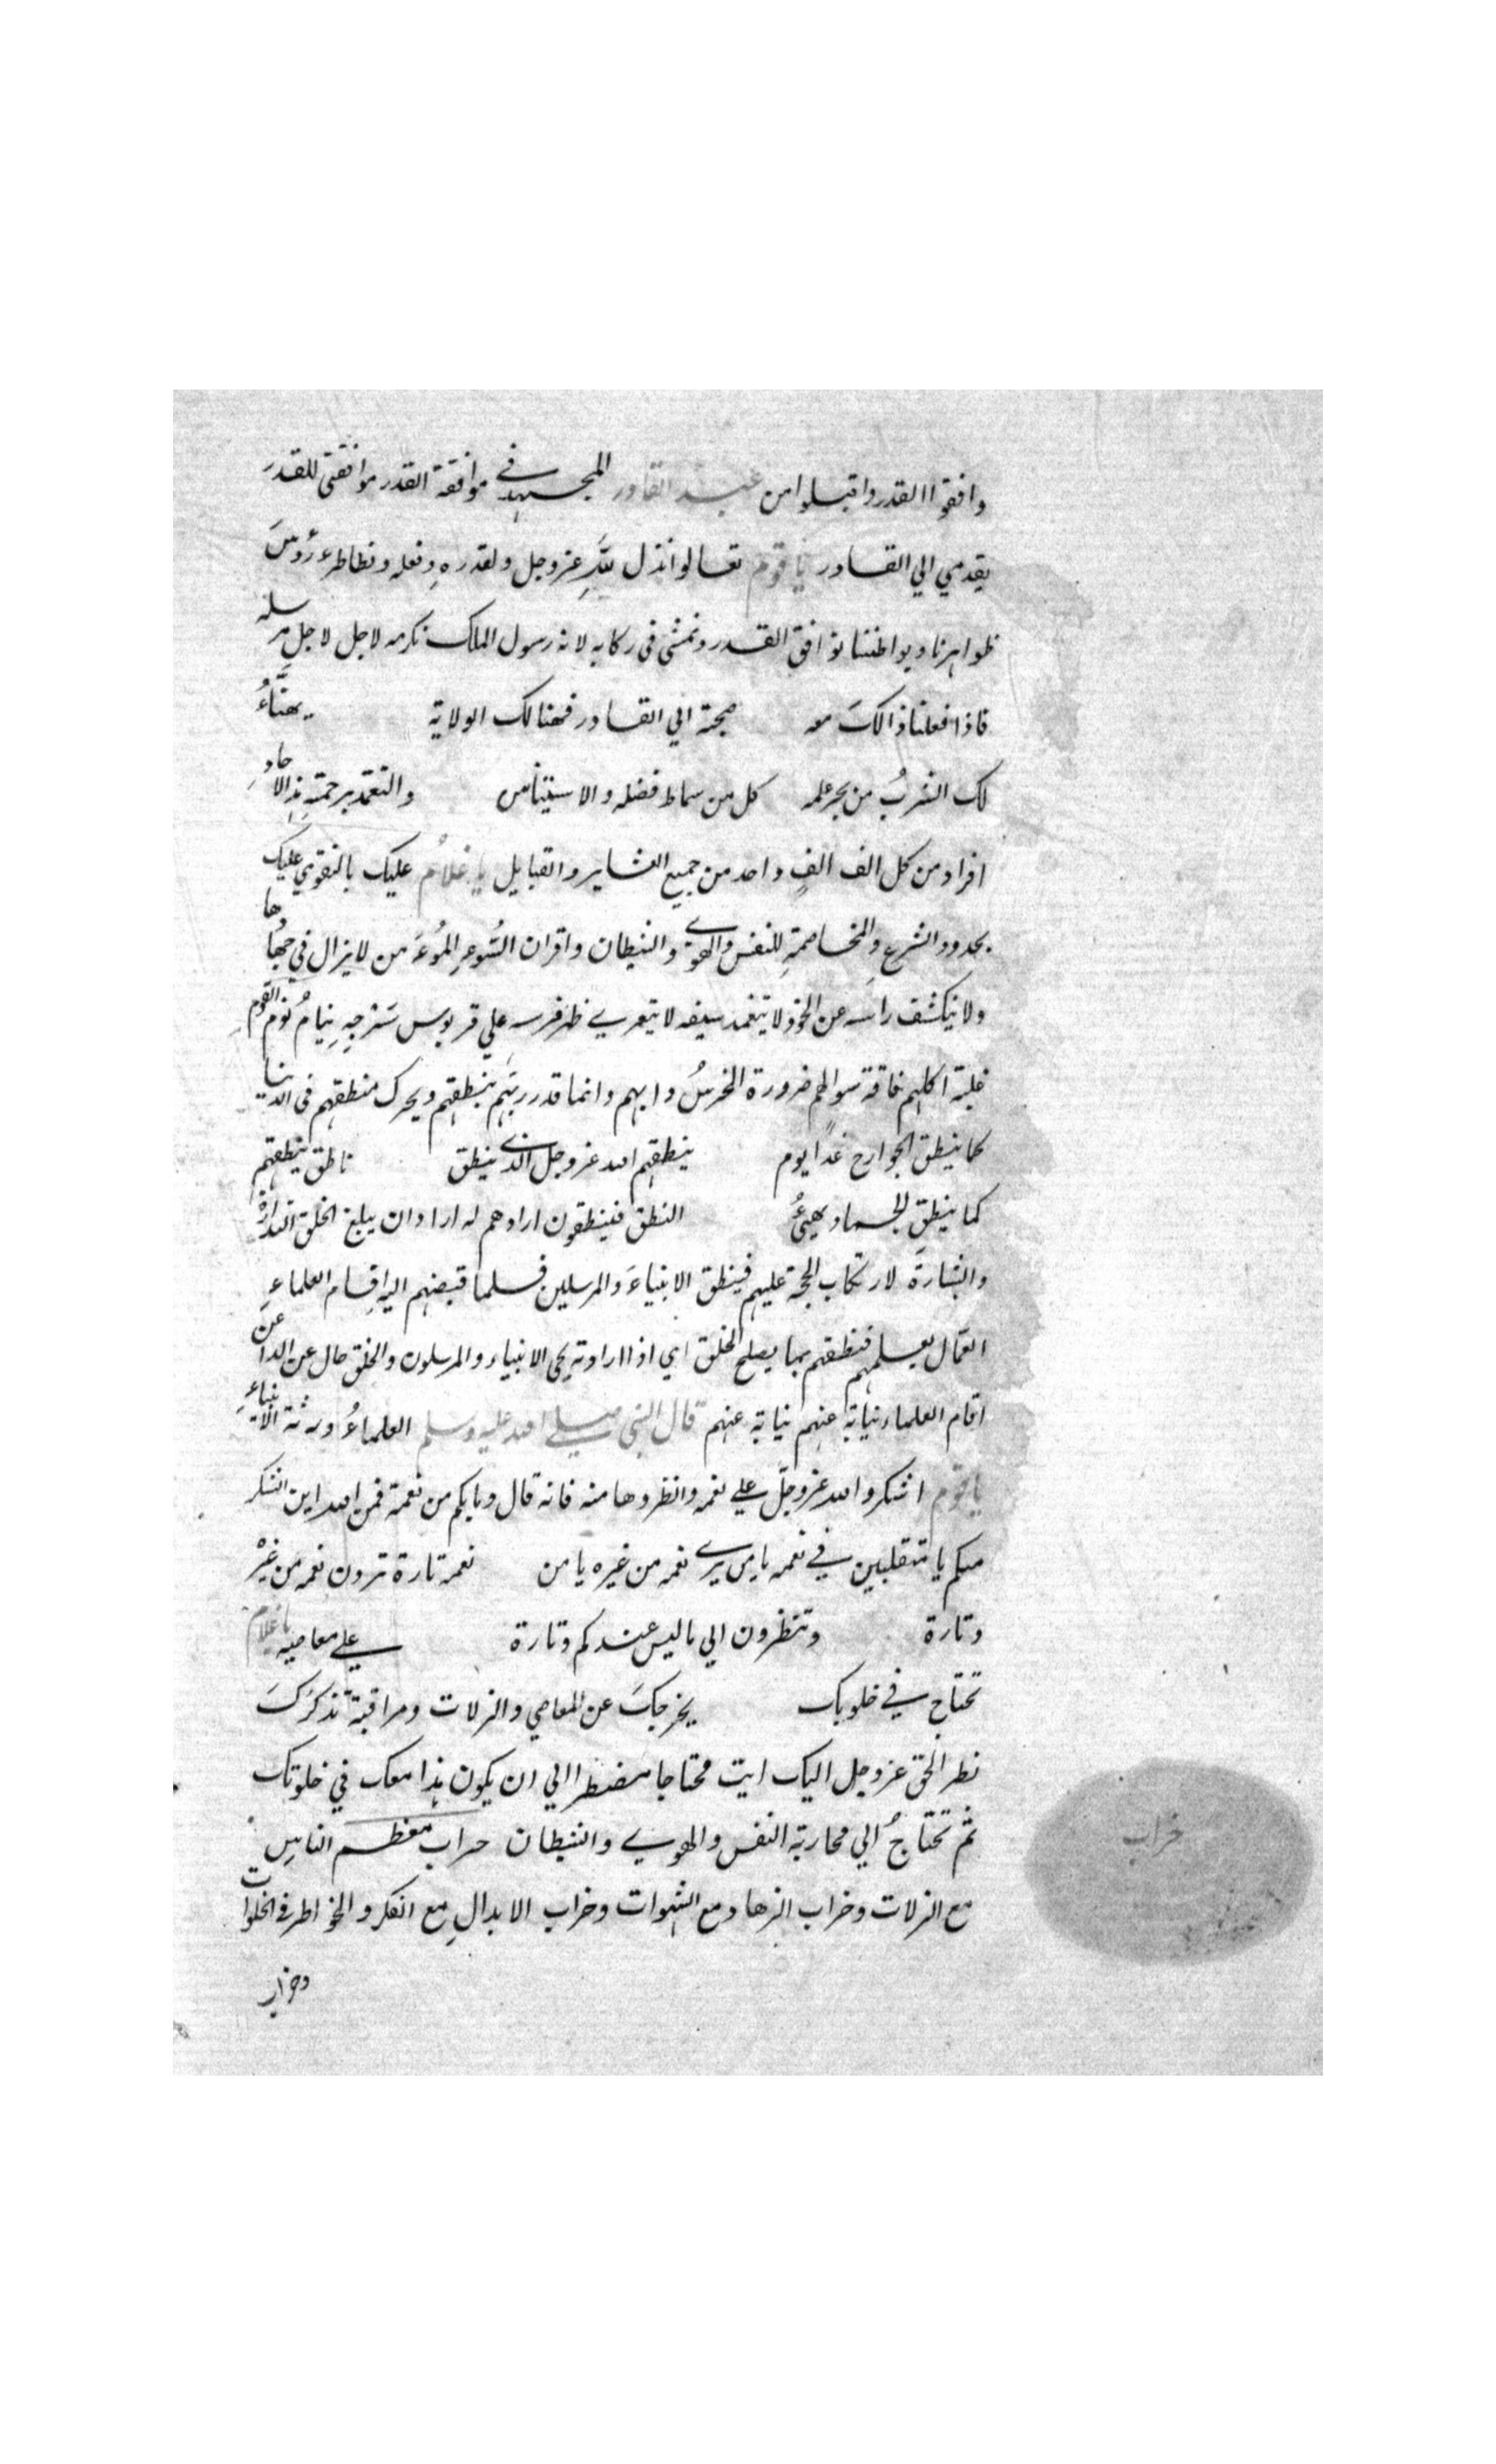 وافقوا القدر واقبلوا من عبد القادر المجتهد في موافقة القدر موافقتي للقدر
يقدمي الي القادر يا قوم تعالوا نذل لله عز وجل ولقدره وفعله ونطاطرء رؤس
ظواهرنا وبواطننا نوافق القدر ونمشي في ركابه لانه رسول الملك نكرمه لاجل لاجل مرسله
فاذا فعلنا ذالك معه صحبة الي القادر فهنالك الولاية يهنَّاءُ
لك الشربُ من بحر علمه كل من سماط فضله والاستيناس والتغمد برحمته هذا لاحاد
افراد من كل الف الفٍ واحد من جميع العشاير والقبايل يا غلام عليك بالتقوي عليك
بحدود الشرع والمخاصمةِ للنفس والهوي والشيطان واقران السُّوءِ المُوءَمن لا يزال في جهادها
ولا ينكشف راسه عن الخوذ لا يتغمد سيفه لا يتعري ظهر فرسه علي قربوس سَرْجِهِ ينامُ نوم القوم
غلبة اكلهم فاقة سوالهم ضرورة الخرسُ دابهم وانما قدر ربهم ينطقهم ويحرك منطقهم في الدنيا
كما ينطق الجوارح غدًا يوم ينطقهم الله عز وجل الذي ينطق ناطق ينطقهم
كما ينطق الجماد يهيئُ النطق فينطقون ارادهم له ارادان يبلغ الخلق النذارة
والبشارةَ لارتكاب الحجة عليهم فينطق الانبياءَ والمرسلين فلما قبضهم اليه اقام العلماءِ
العمال بعلمهم فنطقهم بما يصلح الخلق اي اذا ارادته يحي الانبياء والمرسلون والخلق حال عن الداعن
اقام العلماء نيابةً عنهم نيابة عنهم قال النبي صلي الله عليه وسلم العلماءُ ورثة الانبياءِ
يا قوم اشكروا الله عز وجل علي نعمه وانظروها منه فانه قال وما بكم من نعمة فمن الله اين الشكر
منكم يا متقلبين في نعمه يا من يري نعمه من غيره يا من نعمه تارة ترون نعمه من غيره
وتارة وتنظرون الي ما ليس عندكم وتارة علي معاصيه يا غلام
تحتاج في خلوبك يخرجكَ عن المعاصي والزلات ومراقبة تذكركَ
نظر الحق عز وجل اليك ايت محتاجا مضطرا الي ان يكون هذا معك في خلوتك
ثم تحتاجُ الي محاربة النفس والهوي والشيطان حراب معظم الناس
مع الزلات وخراب الزهاد مع الشهوات وخراب الابدال مع الفكر والخواطر في الخلوات
وخراب
خراب